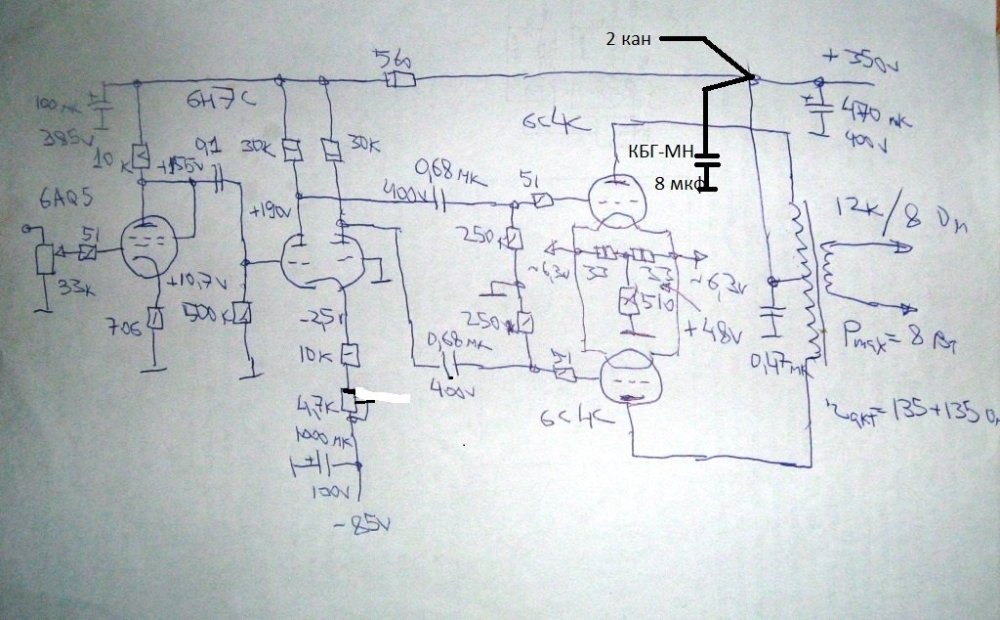 2 кан
560
+350v
100 мк
385v
6Н7С
6С4С
470 мк
400v
КБГ-МН
8 мкф
10к
+155v
0,1
30К
30К
0,68 мк
400v
51
12К/8 Ом
6AQ5
51
33к
+190v
250к
~6,3v
33
33
~6,3v
+10,7v
706
500к
-2,5v
250к
510
+48v
0,68 мк
400v
0,47 мк
Pmax = 8 Вт
10к
51
4,7К
6С4С
rакт = 135+135 Ом
1000 мк
100v
-85v